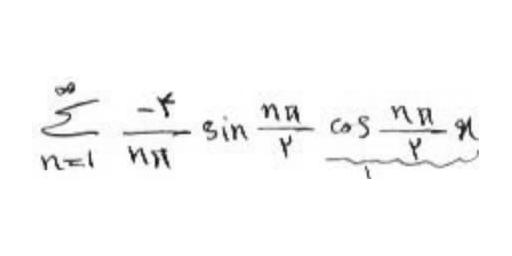 ∑_{n=1}^{∞} \frac{-۴}{nπ} sin \frac{nπ}{۲} cos \frac{nπ}{۲} x